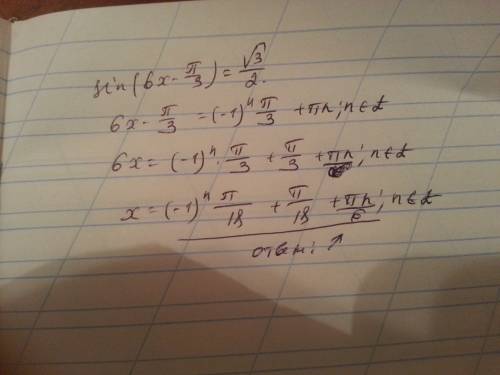 sin(6x - π/3) = √3/2.
6x - π/3 = (-1)ⁿ π/3 + πn; n ∈ Z
6x = (-1)ⁿ · π/3 + π/3 + πn; n ∈ Z
x = (-1)ⁿ π/18 + π/18 + πn/6; n ∈ Z
ответ: ↗